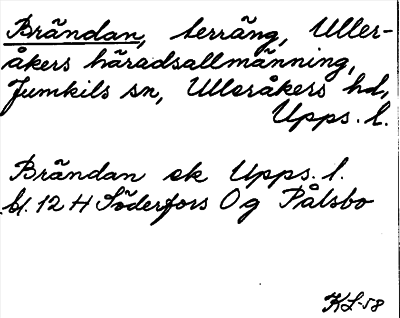 Brändan, terräng, Uller-
åkers häradsallmänning,
Jumkils sn, Ulleråkers hd,
Upps. l.
Brändan ek Upps. l.
bl. 12 H Söderfors O g Pålsbo
KL-58